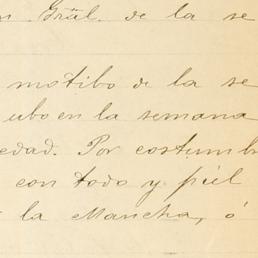 n Gräl. de la se
motibo de la se
ubo en la semana
edad. Por costumbr
con todo y piel
la Mancha, ó